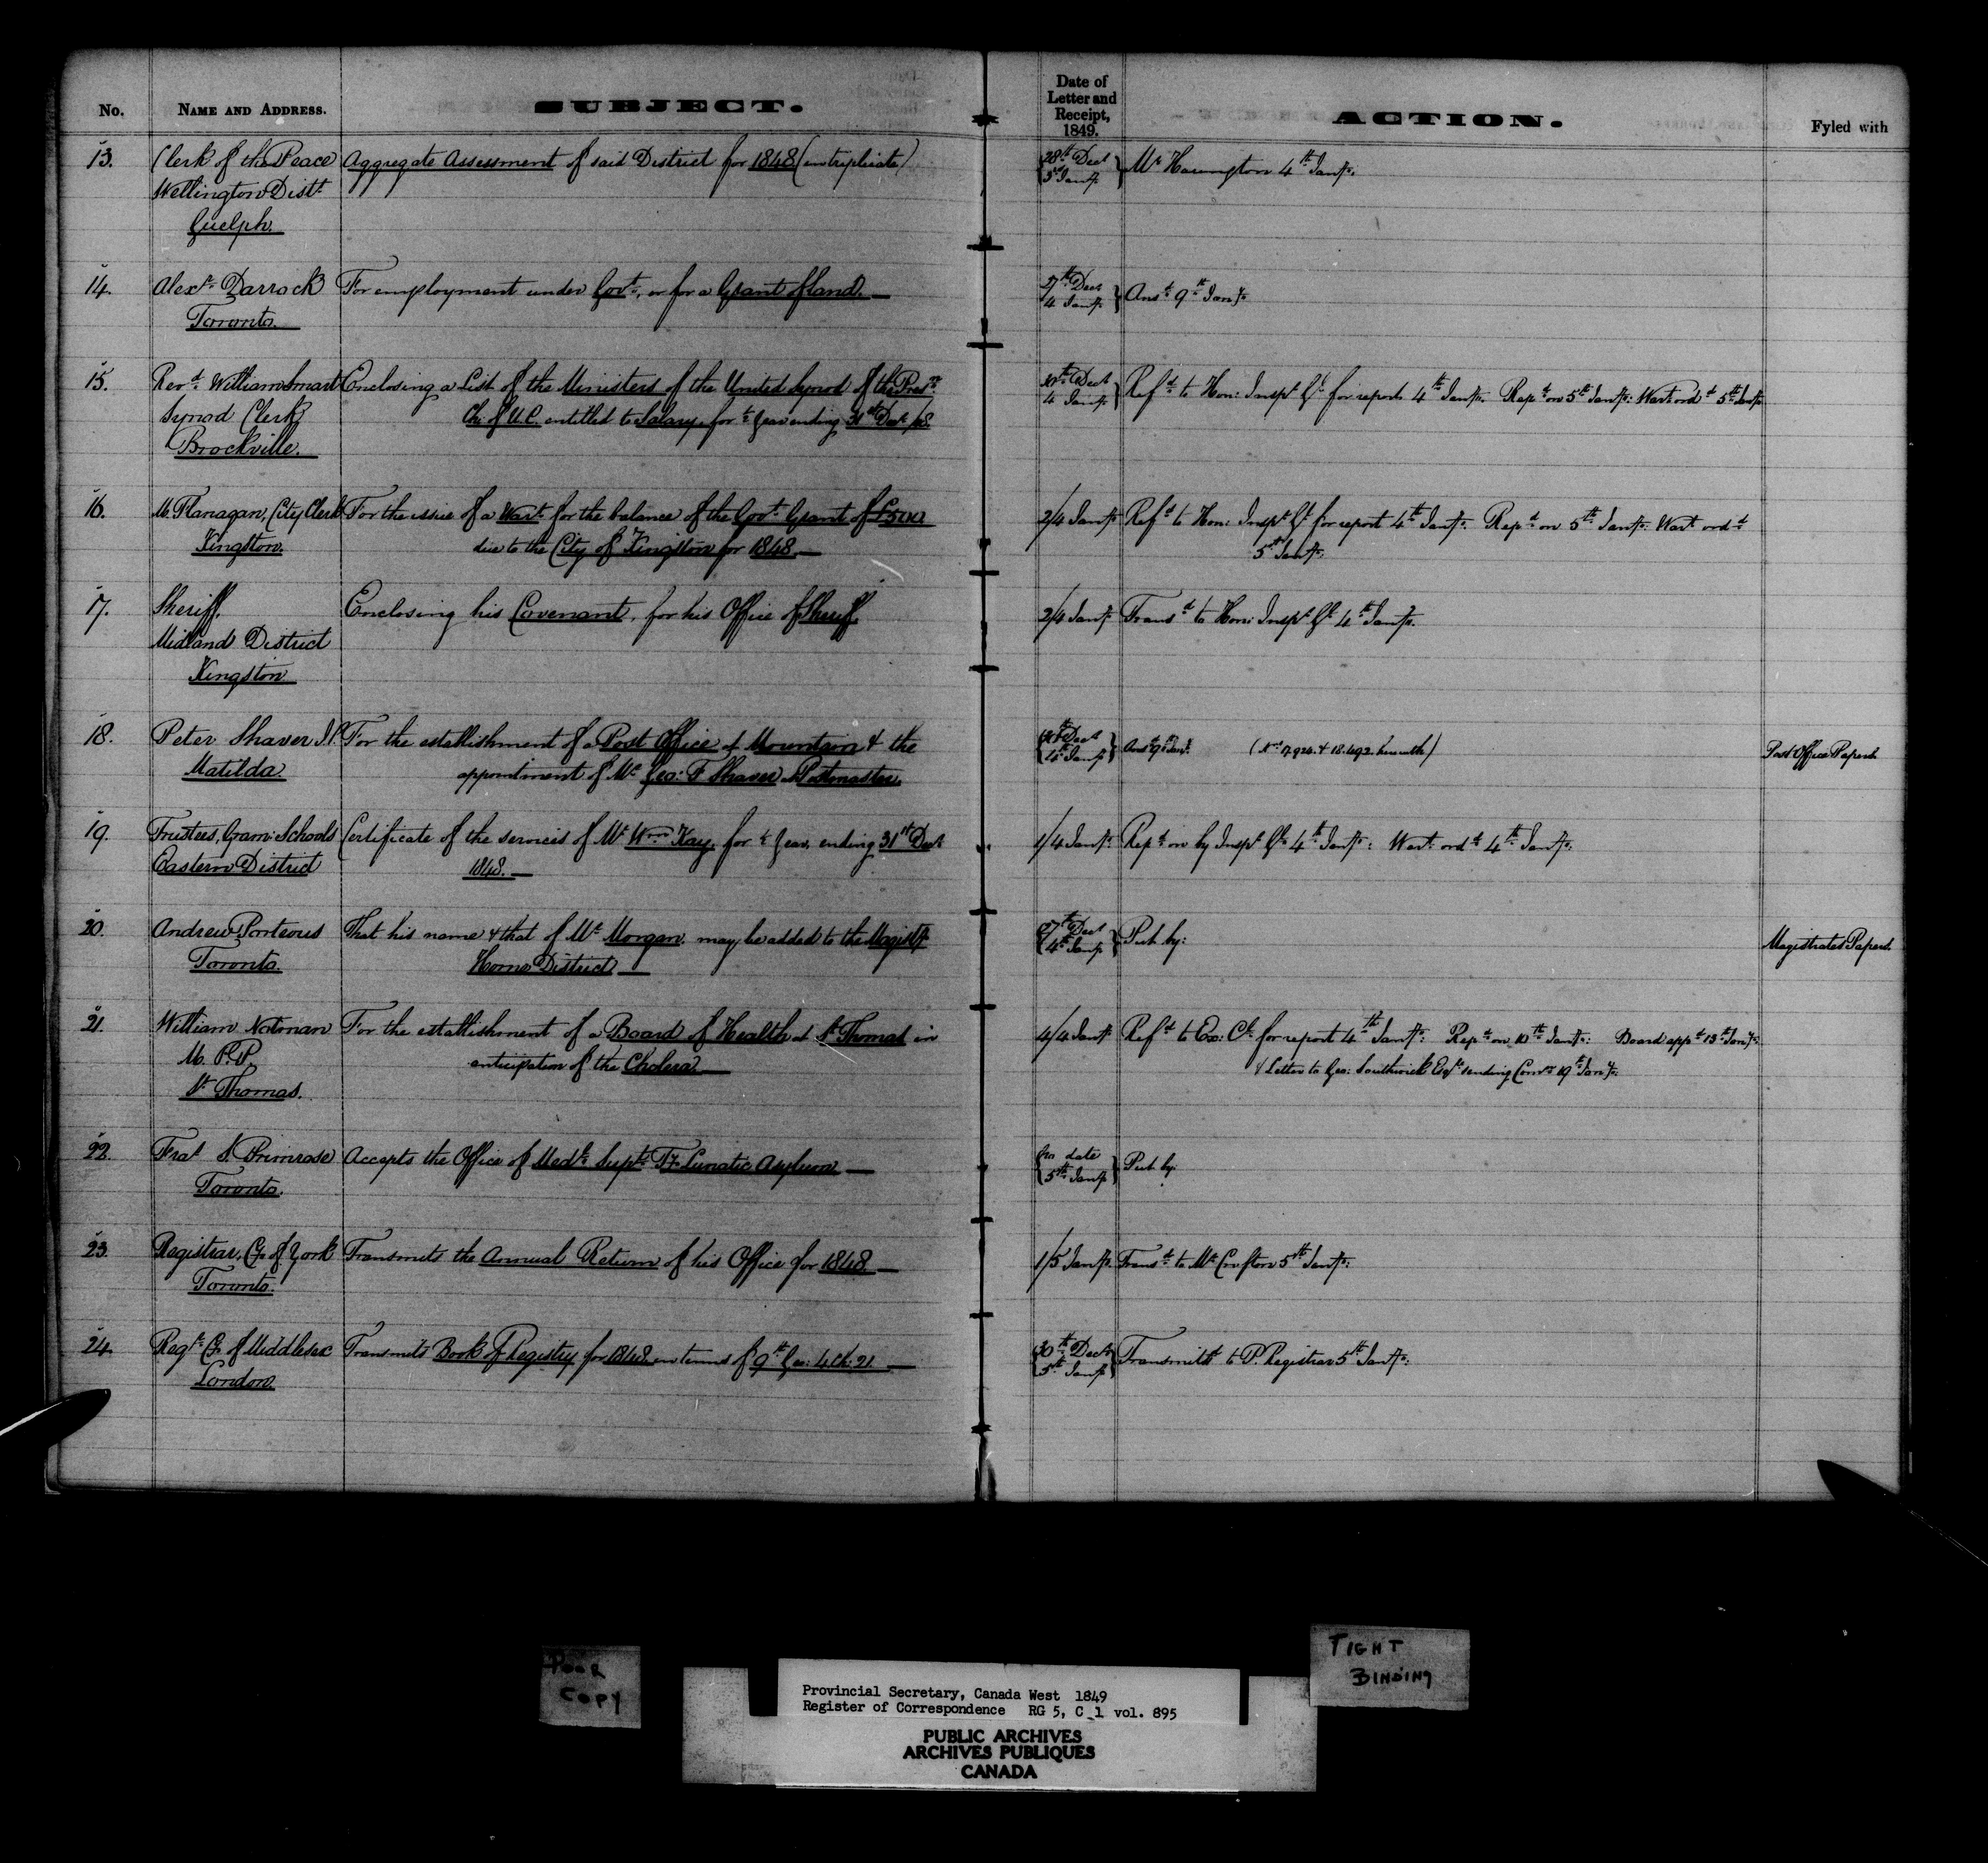 No. NAME AND ADDRESS. SUBJECT. Date of Letter and Receipt, 1849. ACTION. Fyled with
13. Clerk of the Peace Aggregate Assessment of said District for 1848 (in triplicate) 28th Decr Mr Harrington 4th Jany.
Wellington Distt 3d Jany
Guelph.
14. Alexr Darrock For employment under Govt, or for a Grant of land. — 27th Decr Ansd 9th Jany
Toronto. 4 Jany
15. Revd William Smart Enclosing a List of the Ministers of the United Synod of the Presn 30th Decr Refd to Hon: Inspr Gl for report 4th Jany. Repd on 5th Jany: Wart ordd 5th Jany
Synod Clerk Ch: of U.C. entitled to Salary, for ½ Year ending 31st Decr /48 4 Jany
Brockville.
16. M. Flanagan, City Clerk For the issue of a Wart for the balance of the Govt Grant of £500 2/4 Jany Refd to Hon: Inspr Gl for report 4th Jany. Repd on 5th Jany. Wart ordd
Kingston. due to the City of Kingston for 1848. — 5th Jany.
17. Sheriff, Enclosing his Covenant, for his Office of Sheriff. 2/4 Jany Transd to Hon: Inspr Gl 4th Jany.
Midland District
Kingston
18. Peter Shaver J.P. For the establishment of a Post Office at Mountain & the Decr Ansd 9th Jany. (Nos 17.924. & 18.492. herewith) Post Office Papers.
Matilda appointment of Mr Geo: F Shaver as Postmaster. 4th Jany
19. Trustees, Gram: Schools Certificate of the services of Mr Wm Kay, for ½ Year, ending 31st Decr 1/4 Jany Repd on by Inspr Gl 4th Jany: Wart ordd 4th Jany.
Eastern District 1848. —
20. Andrew Porteous That his name & that of Mr Morgan, may be added to the Magisty 27th Decr Put by: Magistrates Papers.
Toronto. Home District — 4th Jany
21. William Notman For the establishment of a Board of Health at St Thomas in 4/4 Jany Refd to Ex: Cl for report 4th Jany: Repd on 10th Jany: Board appd 13th Jany:
M. P.P. anticipation of the Cholera — & Letter to Geo: Southwick Esqre sending Comn 19th Jany:
St Thomas.
22. Fras S. Primrose Accepts the Office of Medl Supt Ty Lunatic Asylum — no date Put by.
Toronto. 5th Jany
23. Registrar, Co of York Transmits the Annual Return of his Office for 1848 — 1/5 Jany. Transd to Mr Crofton 5th Jany:
Toronto.
24. Regr Co of Middlesex Transmits Book of Registry for 1848 in terms of 9th Geo: 4 Ch: 21. — 30th Decr Transmittd to P. Registrar 5th Jany:
London. 5th Jany
POOR
COPY
TIGHT
BINDING
Provincial Secretary, Canada West 1849
Register of Correspondence RG 5, C 1 vol. 895
PUBLIC ARCHIVES
ARCHIVES PUBLIQUES
CANADA